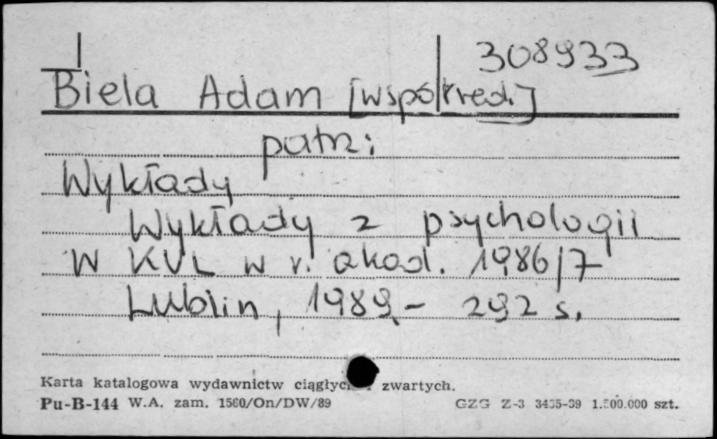 308933
Biela Adam [współred.]
patrz:
Wykłady
Wykłady z psychologii
w KUL w r. akad. 1986/7
Lublin, 1989.- 292 s.
Karta katalogowa wydawnictw ciągłych i zwartych.
Pu-B-144 W.A. zam. 1560/On/DW/89 GZG Z-3 3435-89 1.500.000 szt.